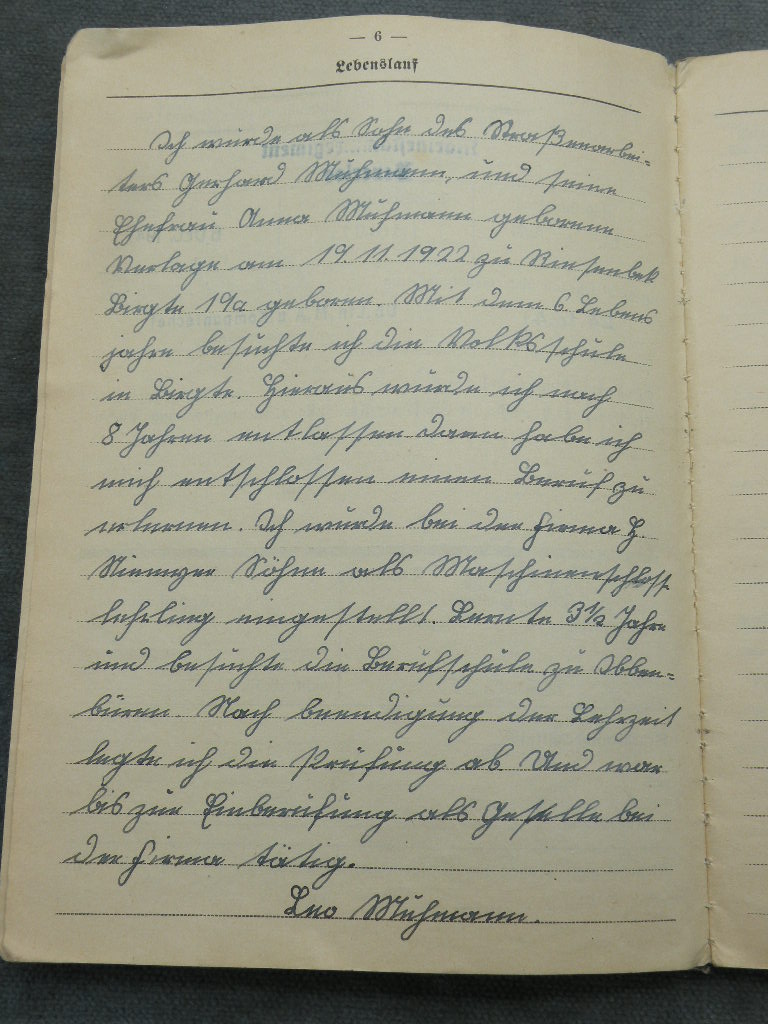 — 6 —
Lebenslauf
Ich wurde als Sohn des Straßenarbei-
ters Gerhard Muhmann, und seine
Ehefrau Anna Muhmann geborene
Verlage am 19.11.1922 zu Riesenbek
Birgte 19a geboren. Mit dem 6. Lebens
jahre besuchte ich die Volksschule
in Birgte. Hieraus wurde ich nach
8 Jahren entlassen dann habe ich
mich entschlossen einen Beruf zu
erlernen. Ich wurde bei der Firma H
Niemyer Söhne als Maschinenschloss
lehrling eingestellt. Lernte 3 1/2 Jahre
und besuchte die Berufschule zu Ibben-
büren. Nach beendigung der Lehrzeit
legte ich die Prüfung ab. Und war
bis zur Einberufung als Geselle bei
der Firma tätig.
Leo Muhmann.